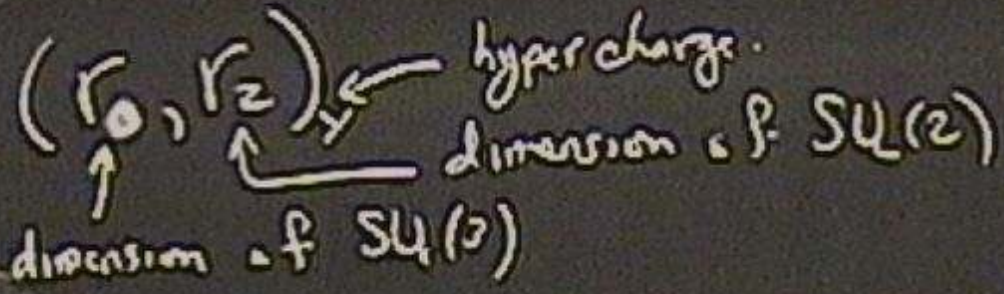 (r₃, r₂)_Y ← hypercharge.
dimension of SU(2)
dimension of SU(3)